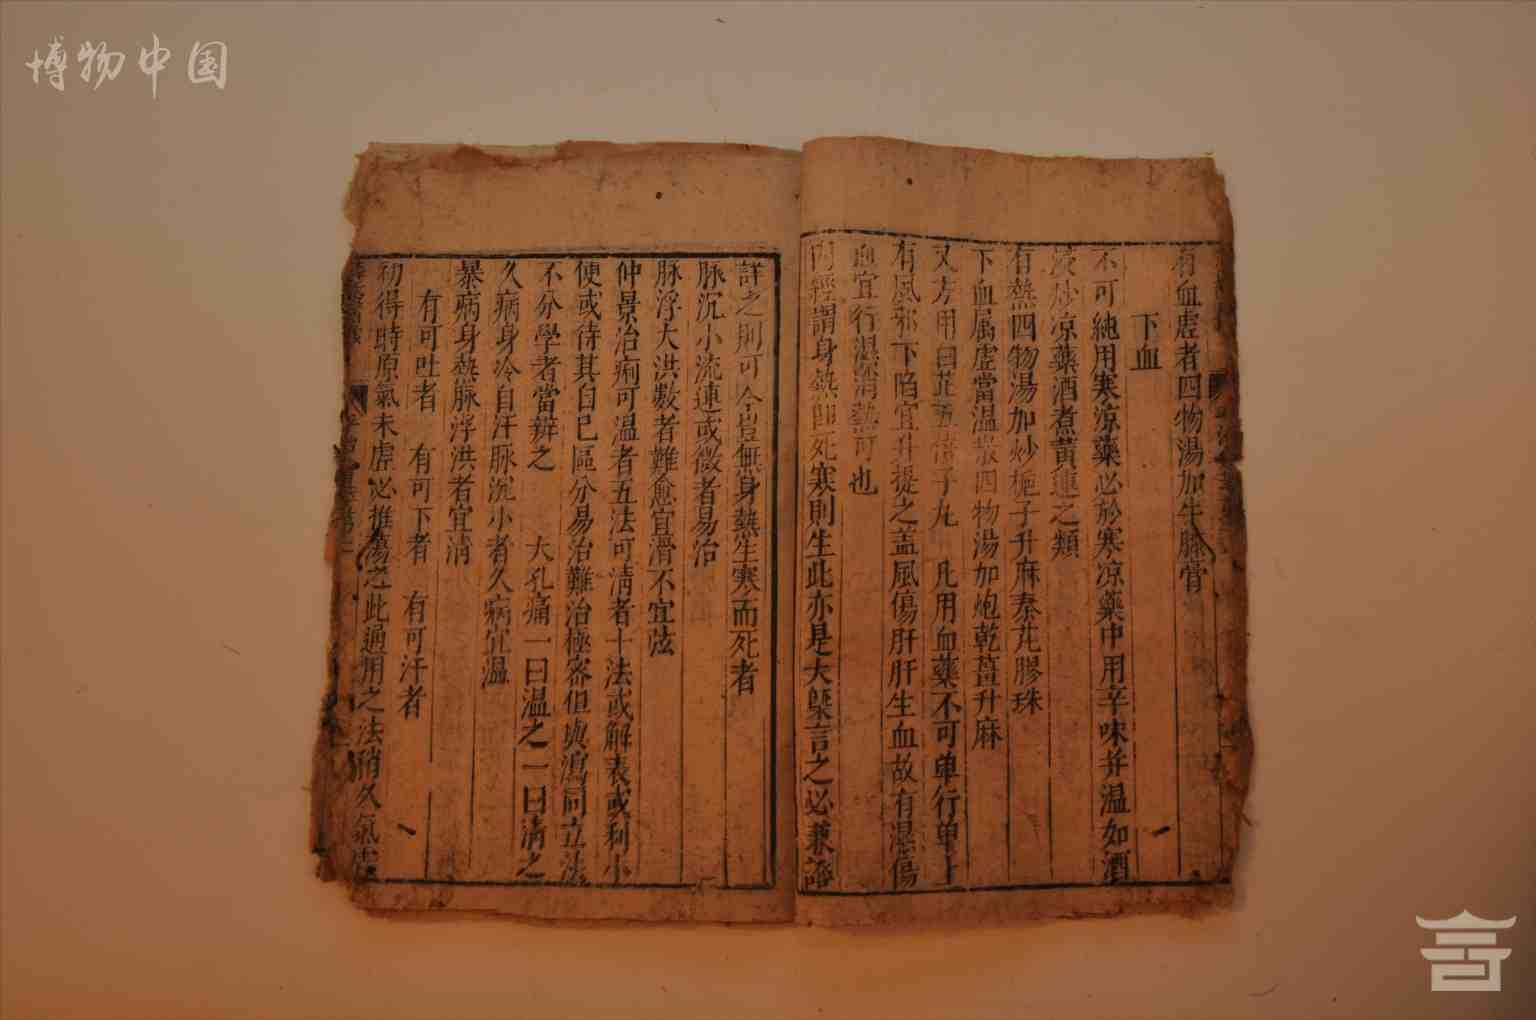 博物中国
有血虛者四物湯加牛膝膏
下血
不可純用寒涼藥必於寒凉藥中用辛味并温如酒
浸炒凉藥酒煮黃連之類
有熱四物湯加炒梔子升麻秦艽膠珠
下血属虛當温散四物湯加炮乾薑升麻
又方用白芷五倍子丸 凡用血藥不可单行单止
有風邪下陷宜升提之盖風傷肝肝生血故有濕傷
血宜行濕消熱可也
内經謂身熱即死寒則生此亦是大槩言之必兼證
詳之則可今豈無身熱生寒而死者
脉沉小流連或微者易治
脉浮大洪数者難愈宜滑不宜弦
仲景治痢可温者五法可清者十法或解表或利小
便或待其自已區分易治難治極密但與瀉同立法
不分學者當辨之 大孔痛一曰温之一曰清之
久病身冷自汗脉沉小者久病宜温
暴病身熱脉浮洪者宜清
有可吐者 有可下者 有可汗者
初得時原氣未虛必推蕩之此通用之法稍久氣